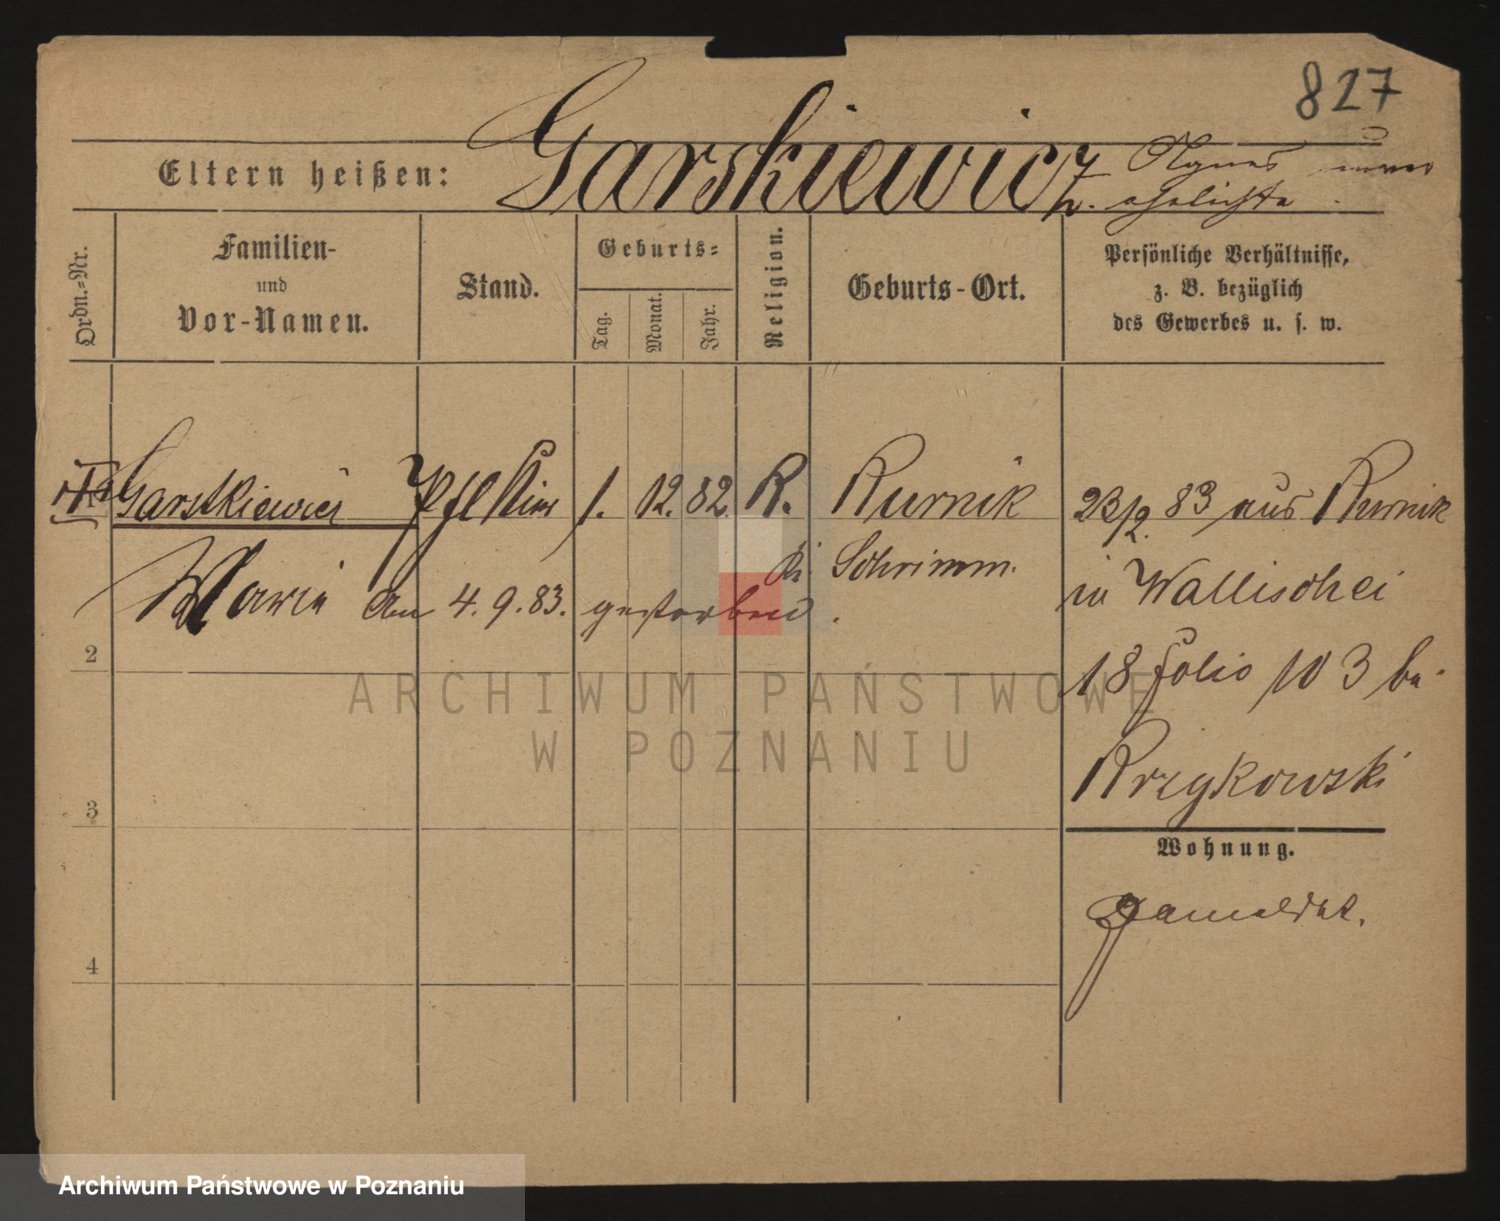 827
Eltern heißen: Garskiewicz Agnes unver
ehelichte.
Ordn.=Nr.
Familien-
und
Vor-Namen.
Stand.
Geburts=
Tag.
Monat.
Jahr.
Religion.
Geburts-Ort.
Persönliche Verhältnisse,
z. B. bezüglich
des Gewerbes u. s. w.
Garstkiewicz Pfl Kind 1. 12. 82. K. Kurnik 23/2. 83 aus Kurnik
Marie Kr Schrimm. in Wallischei
am 4. 9. 83. gestorben.
2
18 folio 103 bei
Krzykowski
3
Wohnung.
gemeldet.
4
ARCHIWUM PAŃSTWOWE
W POZNANIU
Archiwum Państwowe w Poznaniu